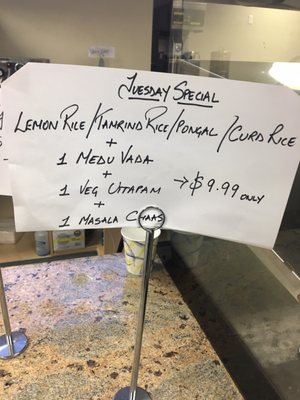 Tuesday Special
Lemon Rice/Tamrind Rice/Pongal/Curd Rice
+
1 Medu Vada
+
1 Veg Uttapam → $9.99 only
+
1 Masala Chaas